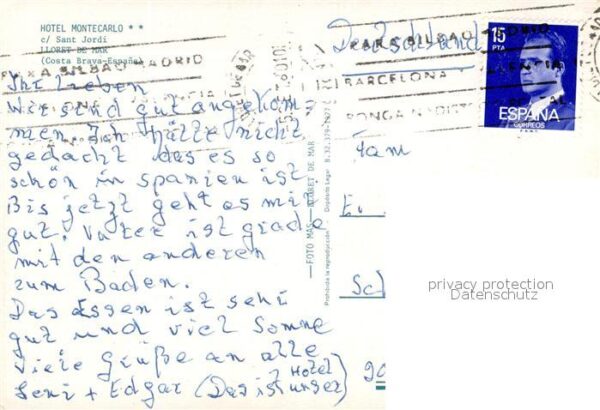 HOTEL MONTECARLO **
c/ Sant Jordi
LLORET DE MAR
(Costa Brava-España)
Ihr Lieben
Wir sind gut angekom-
men. Ich hätte nicht
gedacht das es so
schön in spanien ist.
Bis jetzt geht es mir
gut. Vater ist grade
mit den anderen
zum Baden.
Das Essen ist sehr
gut und viel Sonne
Viele Grüße an alle
Leni + Edgar (Das ist unser Hotel)
FOTO MAS - LLORET DE MAR
Prohibida la reproducción - Depósito Legal B.
Deutschland
15
PTA
ESPAÑA
CORREOS
BILBAO MADRID
BARCELONA
Fam
privacy protection
Datenschutz